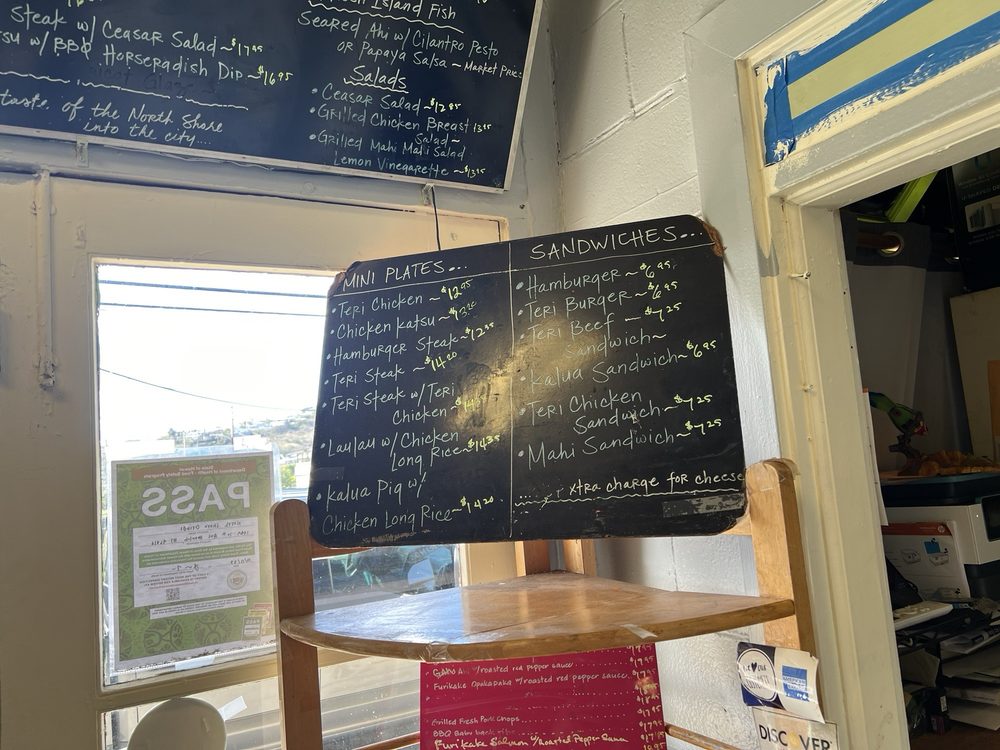 Steak w/ Ceasar Salad ~ $17.95
w/ BBQ Horseradish Dip ~ $16.95
taste of the North Shore
into the city....
Island Fish
Seared Ahi w/ Cilantro Pesto
or Papaya Salsa ~ Market Price
Salads
• Ceasar Salad ~ $12.85
• Grilled Chicken Breast 13.95
Salad ~
• Grilled Mahi Mahi Salad
Lemon Vinegarette ~ $13.95
MINI PLATES...
• Teri Chicken ~ $12.95
• Chicken Katsu ~
• Hamburger Steak ~ $12.95
• Teri Steak ~ $14.20
• Teri Steak w/ Teri
Chicken ~
• Laulau w/ Chicken
Long Rice ~ $14.35
• Kalua Pig w/
Chicken Long Rice ~ $14.20
SANDWICHES...
• Hamburger ~ $6.95
• Teri Burger ~ $6.95
• Teri Beef ~ $7.25
Sandwich ~
• Kalua Sandwich ~ $6.95
• Teri Chicken
Sandwich ~ $7.25
• Mahi Sandwich ~ $7.25
..... xtra charge for cheese
State of Hawaii
PASS
w/roasted red pepper sauce
Furikake Opakapaka w/roasted red pepper sauce
Grilled Fresh Pork Chops
BBQ Baby back
Furikake Salmon w/Roasted Pepper Sauce
AMERICAN EXPRESS
DISCOVER
hp